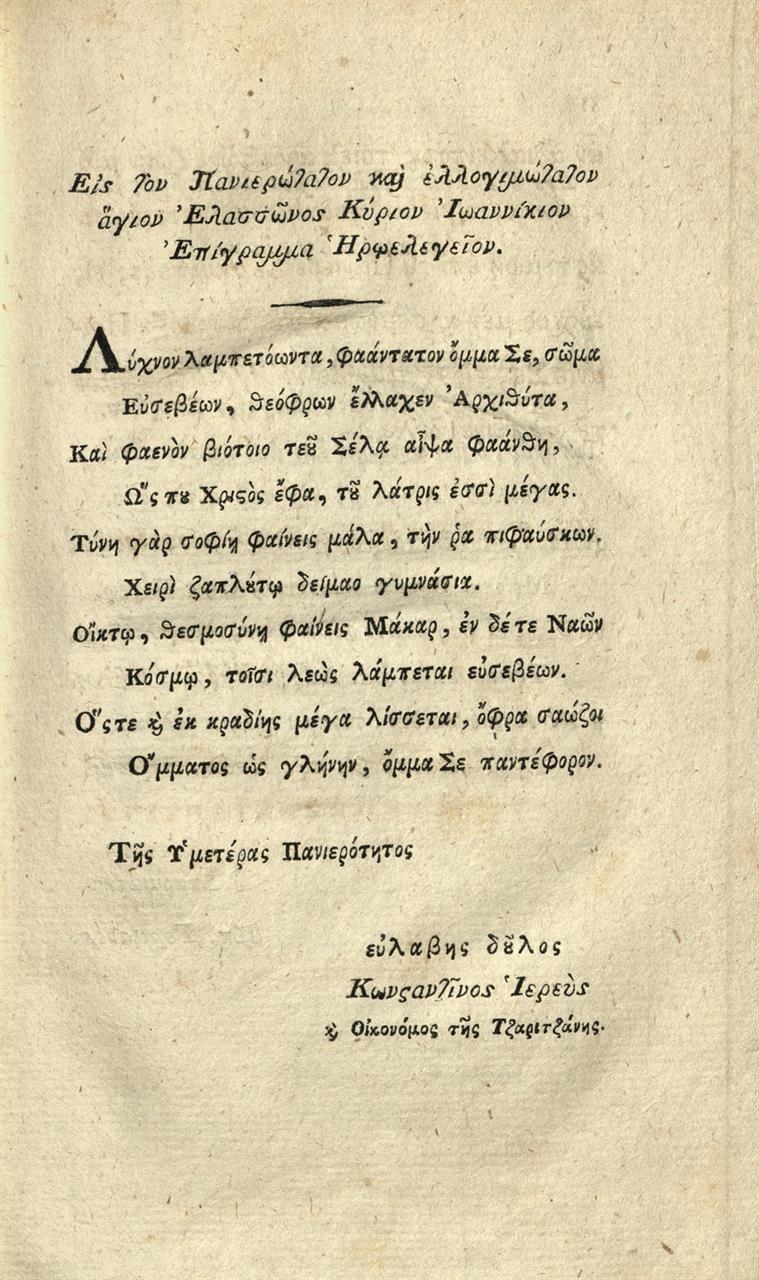 Εἰς τὸν Πανιερώτατον καὶ ἐλλογιμώτατον
ἅγιον Ἐλασσῶνος Κύριον Ἰωαννίκιον
Ἐπίγραμμα Ἡρῳελεγεῖον.
Λύχνον λαμπετόωντα, φαάντατον ὄμμα Σε, σῶμα
Εὐσεβέων, θεόφρων ἔλλαχεν Ἀρχιθύτα,
Καὶ φαενὸν βιότοιο τεȣ͂ Σέλᾳ αἶψα φαάνθη,
Ὥς πȣ Χριϛὸς ἔφα, τȣ͂ λάτρις ἐσσὶ μέγας.
Τύνη γὰρ σοφίῃ φαίνεις μάλα, τὴν ῥα πιφαύσκων.
Χειρὶ ζαπλȣ́τῳ δείμαο γυμνάσια.
Οἴκτῳ, θεσμοσύνῃ φαίνεις Μάκαρ, ἐν δέ τε Ναῶν
Κόσμῳ, τοῖσι λεὼς λάμπεται εὐσεβέων.
Ὅςτε ϗ̀ ἐκ κραδίης μέγα λίσσεται, ὄφρα σαώζοι
Ὄμματος ὡς γλήνην, ὄμμα Σε παντέφορον.
Τῆς Ὑμετέρας Πανιερότητος
εὐλαβης δȣ͂λος
Κωνϛαντῖνος Ἱερεὺς
ϗ̀ Οἰκονόμος τῆς Τζαριτζάνης.